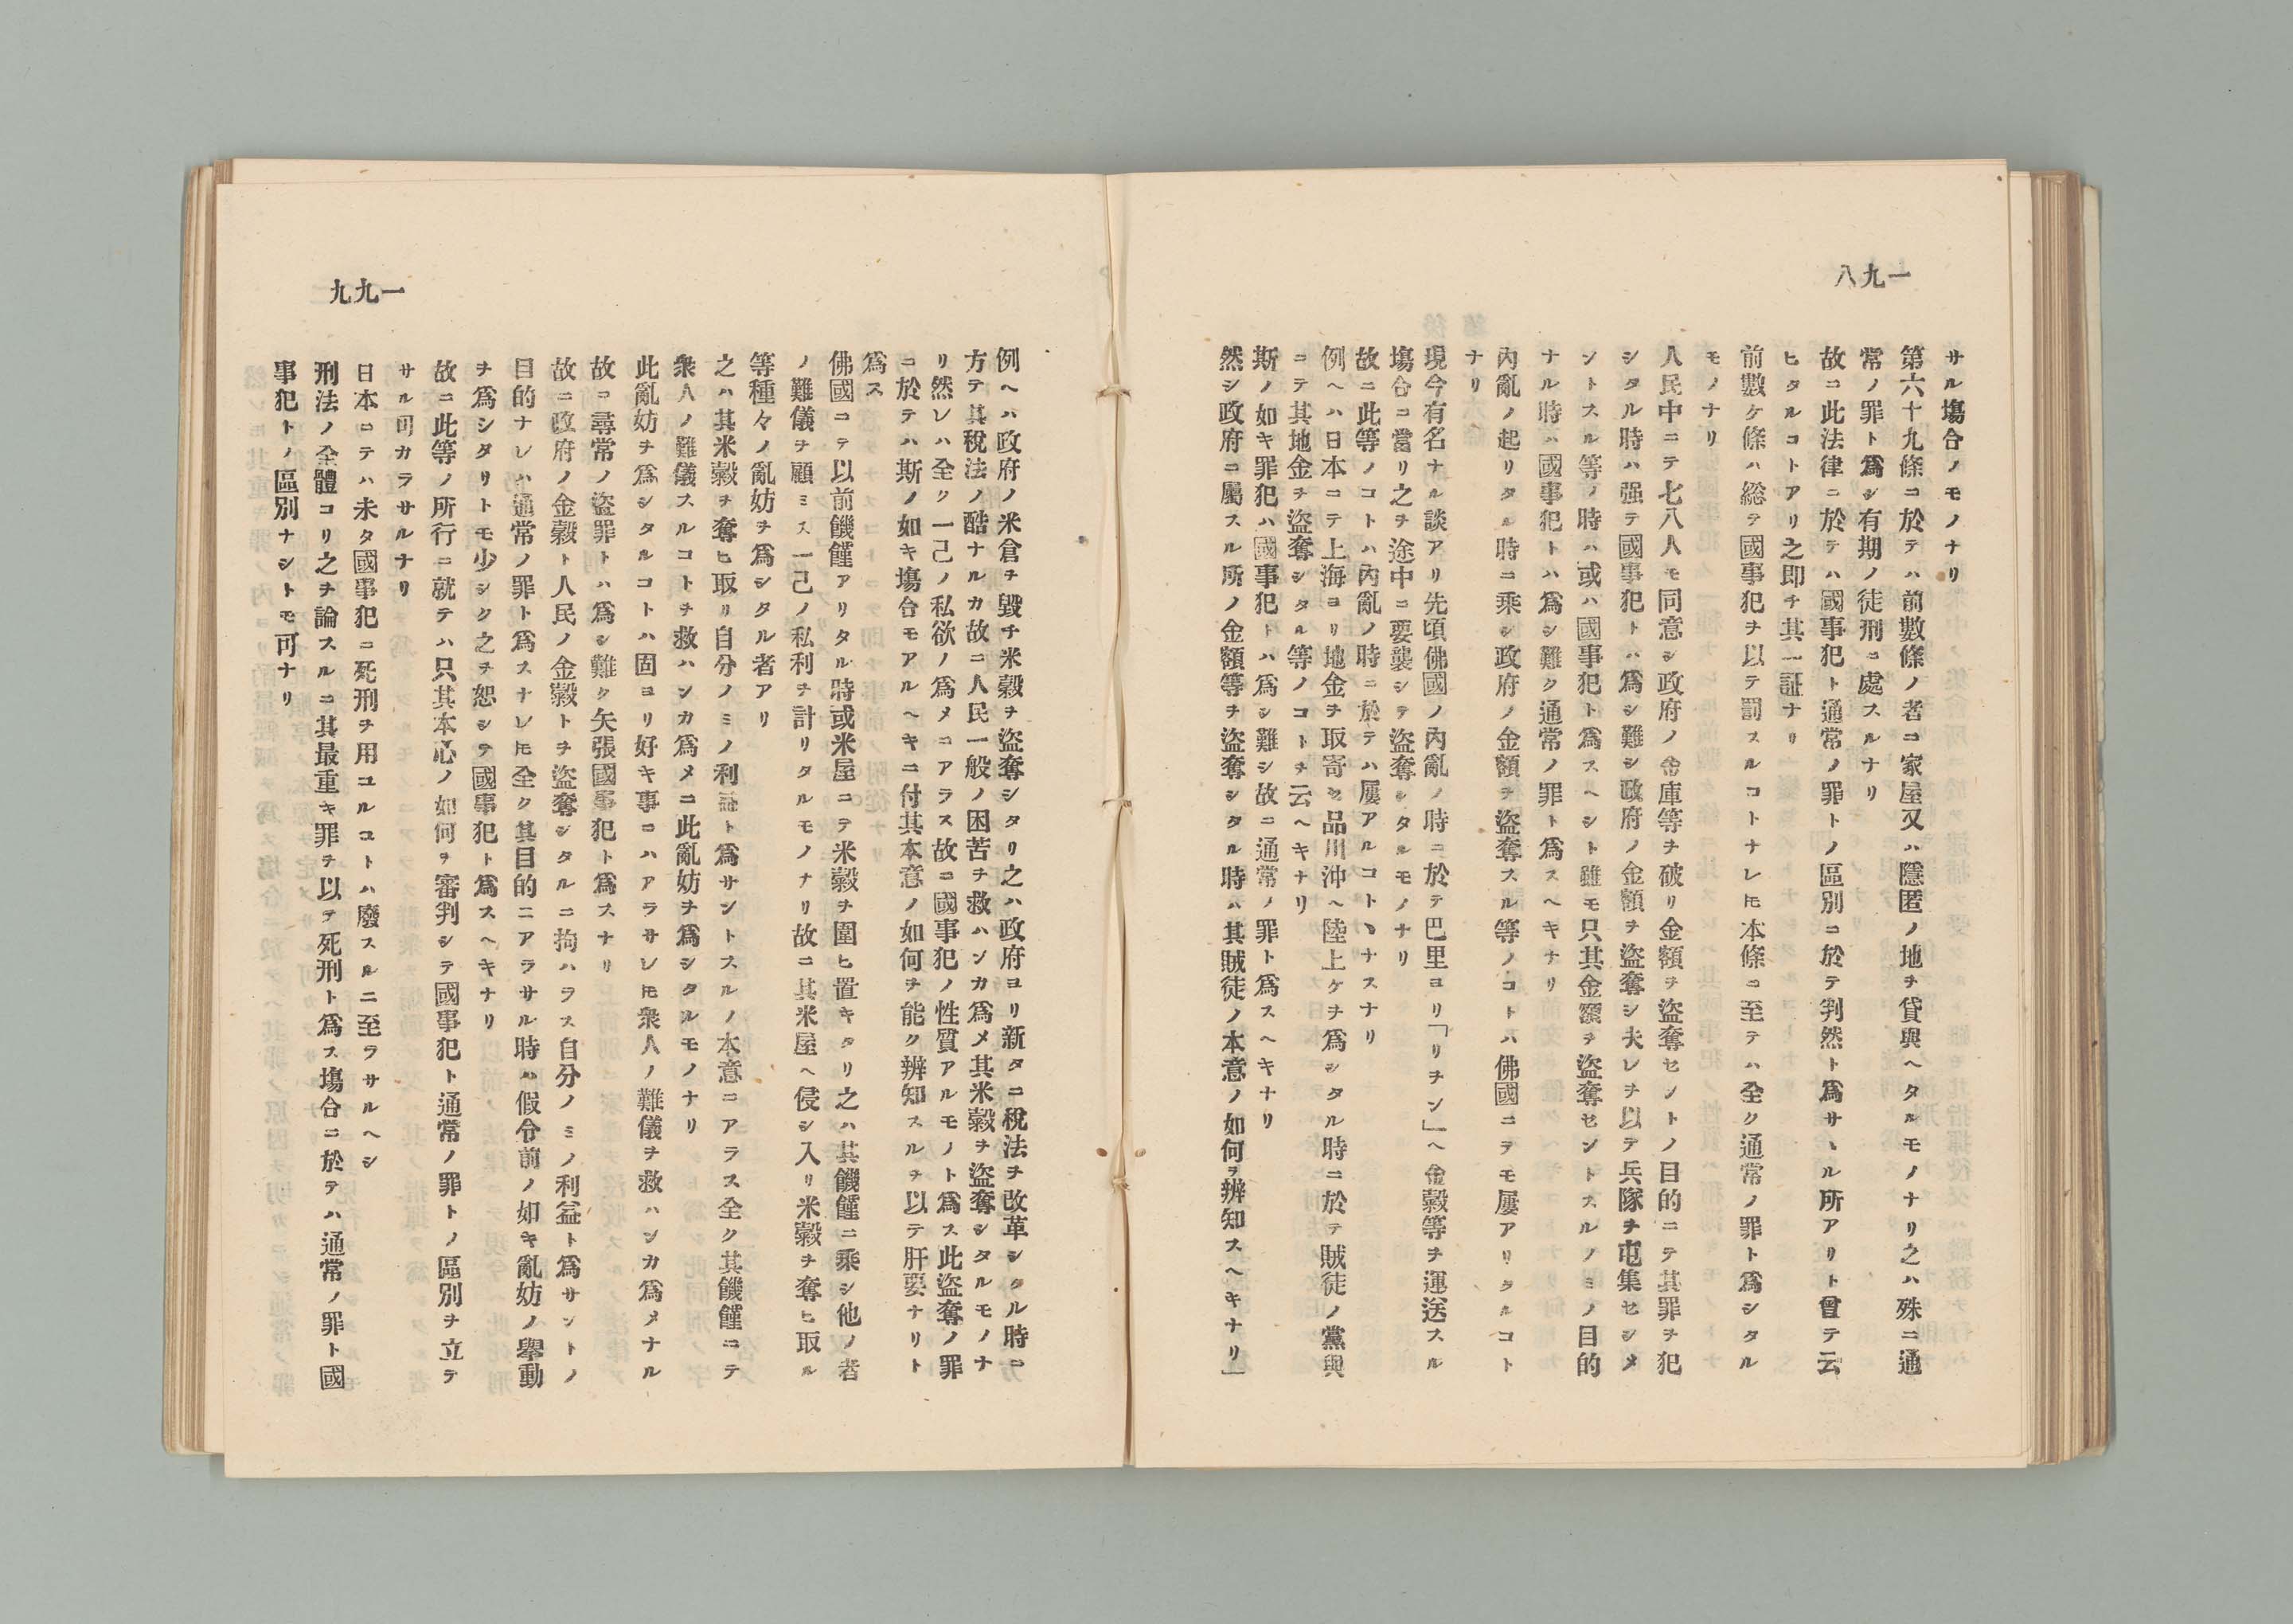 一九八
サル塲合ノモノナリ
第六十九條ニ於テハ前數條ノ者ニ家屋又ハ隱匿ノ地ヲ貸與ヘタルモノナリ之ハ殊ニ通
常ノ罪ト爲シ有期ノ徒刑ニ處スルナリ
故ニ此法律ニ於テハ國事犯ト通常ノ罪トノ區別ニ於テ判然ト爲サヽル所アリト曾テ云
ヒタルコトアリ之即チ其一証ナリ
前數ケ條ハ総テ國事犯ヲ以テ罰スルコトナレ𪜈本條ニ至テハ全ク通常ノ罪ト爲シタル
モノナリ
人民中ニテ七八人モ同意シ政府ノ金庫等ヲ破リ金額ヲ盜奪セントノ目的ニテ其罪ヲ犯
シタル時ハ强テ國事犯トハ爲シ難シ政府ノ金額ヲ盜奪シ夫レヲ以テ兵隊ヲ屯集セシメ
ントスル等ノ時ハ或ハ國事犯ト爲スヘシト雖モ只其金額ヲ盜奪セントスルノミノ目的
ナル時ハ國事犯トハ爲シ難ク通常ノ罪ト爲スヘキナリ
內亂ノ起リタル時ニ乘シ政府ノ金額ヲ盜奪スル等ノコトハ佛國ニテモ屢アリタルコト
ナリ
現今有名ナル談アリ先頃佛國ノ內亂ノ時ニ於テ巴里ヨリ「リヲン」ヘ金穀等ヲ運送スル
塲合ニ當リ之ヲ途中ニ要襲シテ盜奪シタルモノナリ
故ニ此等ノコトハ內亂ノ時ニ於テハ屢アルコトヽナスナリ
例ヘハ日本ニテ上海ヨリ地金ヲ取寄セ品川沖ヘ陸上ケヲ爲シタル時ニ於テ賊徒ノ黨與
ニテ其地金ヲ盜奪シタル等ノコトヲ云ヘキナリ
斯ノ如キ罪犯ハ國事犯トハ爲シ難シ故ニ通常ノ罪ト爲スヘキナリ
然シ政府ニ屬スル所ノ金額等ヲ盜奪シタル時ハ其賊徒ノ本意ノ如何ヲ辨知スヘキナリ」
一九九
例ヘハ政府ノ米倉ヲ毀チ米穀ヲ盜奪シタリ之ハ政府ヨリ新タニ稅法ヲ改革シタル時ニ
方テ其稅法ノ酷ナルカ故ニ人民一般ノ困苦ヲ救ハンカ爲メ其米穀ヲ盜奪シタルモノナ
リ然レハ全ク一己ノ私欲ノ爲メニアラス故ニ國事犯ノ性質アルモノト爲ス此盜奪ノ罪
ニ於テハ斯ノ如キ塲合モアルヘキニ付其本意ノ如何ヲ能ク辨知スルヲ以テ肝要ナリト
爲ス
佛國ニテ以前饑饉アリタル時或米屋ニテ米穀ヲ圍ヒ置キタリ之ハ其饑饉ニ乘シ他ノ者
ノ難儀ヲ顧ミス一己ノ私利ヲ計リタルモノナリ故ニ其米屋ヘ侵シ入リ米穀ヲ奪ヒ取ル
等種々ノ亂妨ヲ爲シタル者アリ
之ハ其米穀ヲ奪ヒ取リ自分ノミノ利益ト爲サントスルノ本意ニアラス全ク其饑饉ニテ
衆人ノ難儀スルコトヲ救ハンカ爲メニ此亂妨ヲ爲シタルモノナリ
此亂妨ヲ爲シタルコトハ固ヨリ好キ事ニハアラサレ𪜈衆人ノ難儀ヲ救ハンカ爲メナル
故ニ尋常ノ盜罪トハ爲シ難ク矢張國事犯ト爲スナリ
故ニ政府ノ金穀ト人民ノ金穀トヲ盜奪シタルニ拘ハラス自分ノミノ利益ト爲サントノ
目的ナレハ通常ノ罪ト爲スナレ𪜈全ク其目的ニアラサル時ハ假令前ノ如キ亂妨ノ擧動
ヲ爲シタリトモ少シク之ヲ恕シテ國事犯ト爲スヘキナリ
故ニ此等ノ所行ニ就テハ只其本心ノ如何ヲ審判シテ國事犯ト通常ノ罪トノ區別ヲ立テ
サル可カラサルナリ
日本ニテハ未タ國事犯ニ死刑ヲ用ユルコトハ廢スルニ至ラサルヘシ
刑法ノ全體ヨリ之ヲ論スルニ其最重キ罪ヲ以テ死刑ト爲ス塲合ニ於テハ通常ノ罪ト國
事犯トノ區別ナシトモ可ナリ